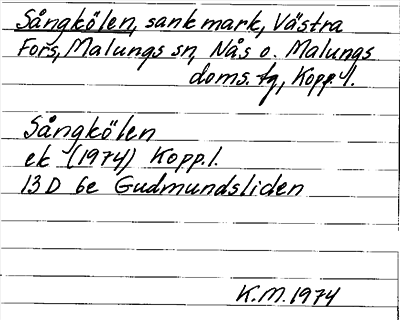 Sångkölen, sank mark, Västra
Fors, Malungs sn, Nås o. Malungs
doms. tg, Kopp. l.
Sångkölen
ek (1974) Kopp. l.
13 D 6e Gudmundsliden
K.M. 1974